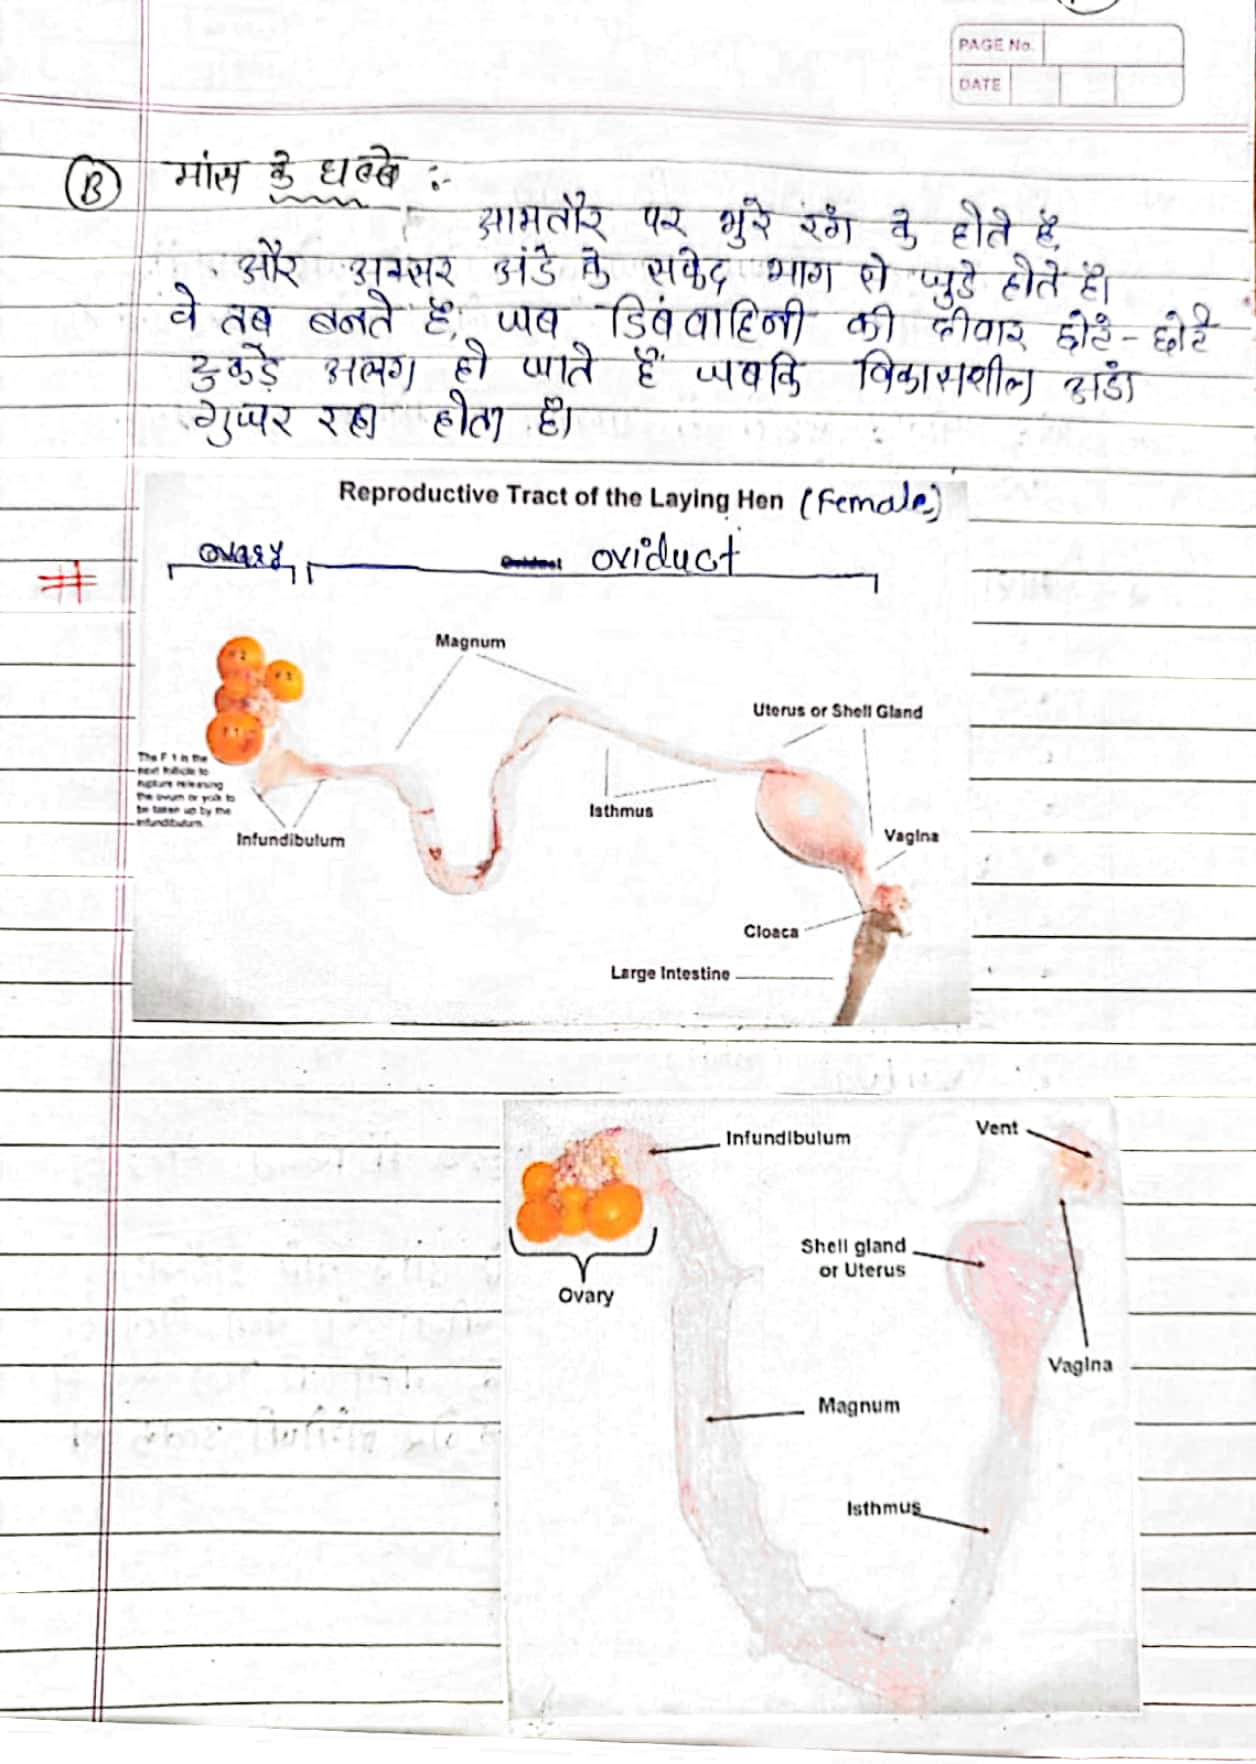 PAGE No.
DATE
(B) मांस के धब्बे :-
आमतौर पर भुरे रंग के होते है,
और अक्सर अंडे के सफेद भाग से जुडे होते है।
वे तब बनते है, जब डिंबवाहिनी की दीवार छोटे-छोटे
टुकड़े अलग हो जाते हैं जबकि विकासशील अंडा
गुजर रहा होता है।
Reproductive Tract of the Laying Hen (Female)
ovary oviduct
#
Magnum
Uterus or Shell Gland
The F 1 is the
next follicle to
rupture releasing
the ovum or yolk to
be taken up by the
infundibulum.
Isthmus
Infundibulum
Vagina
Cloaca
Large Intestine
Infundibulum
Vent
Shell gland
or Uterus
Ovary
Vagina
Magnum
Isthmus